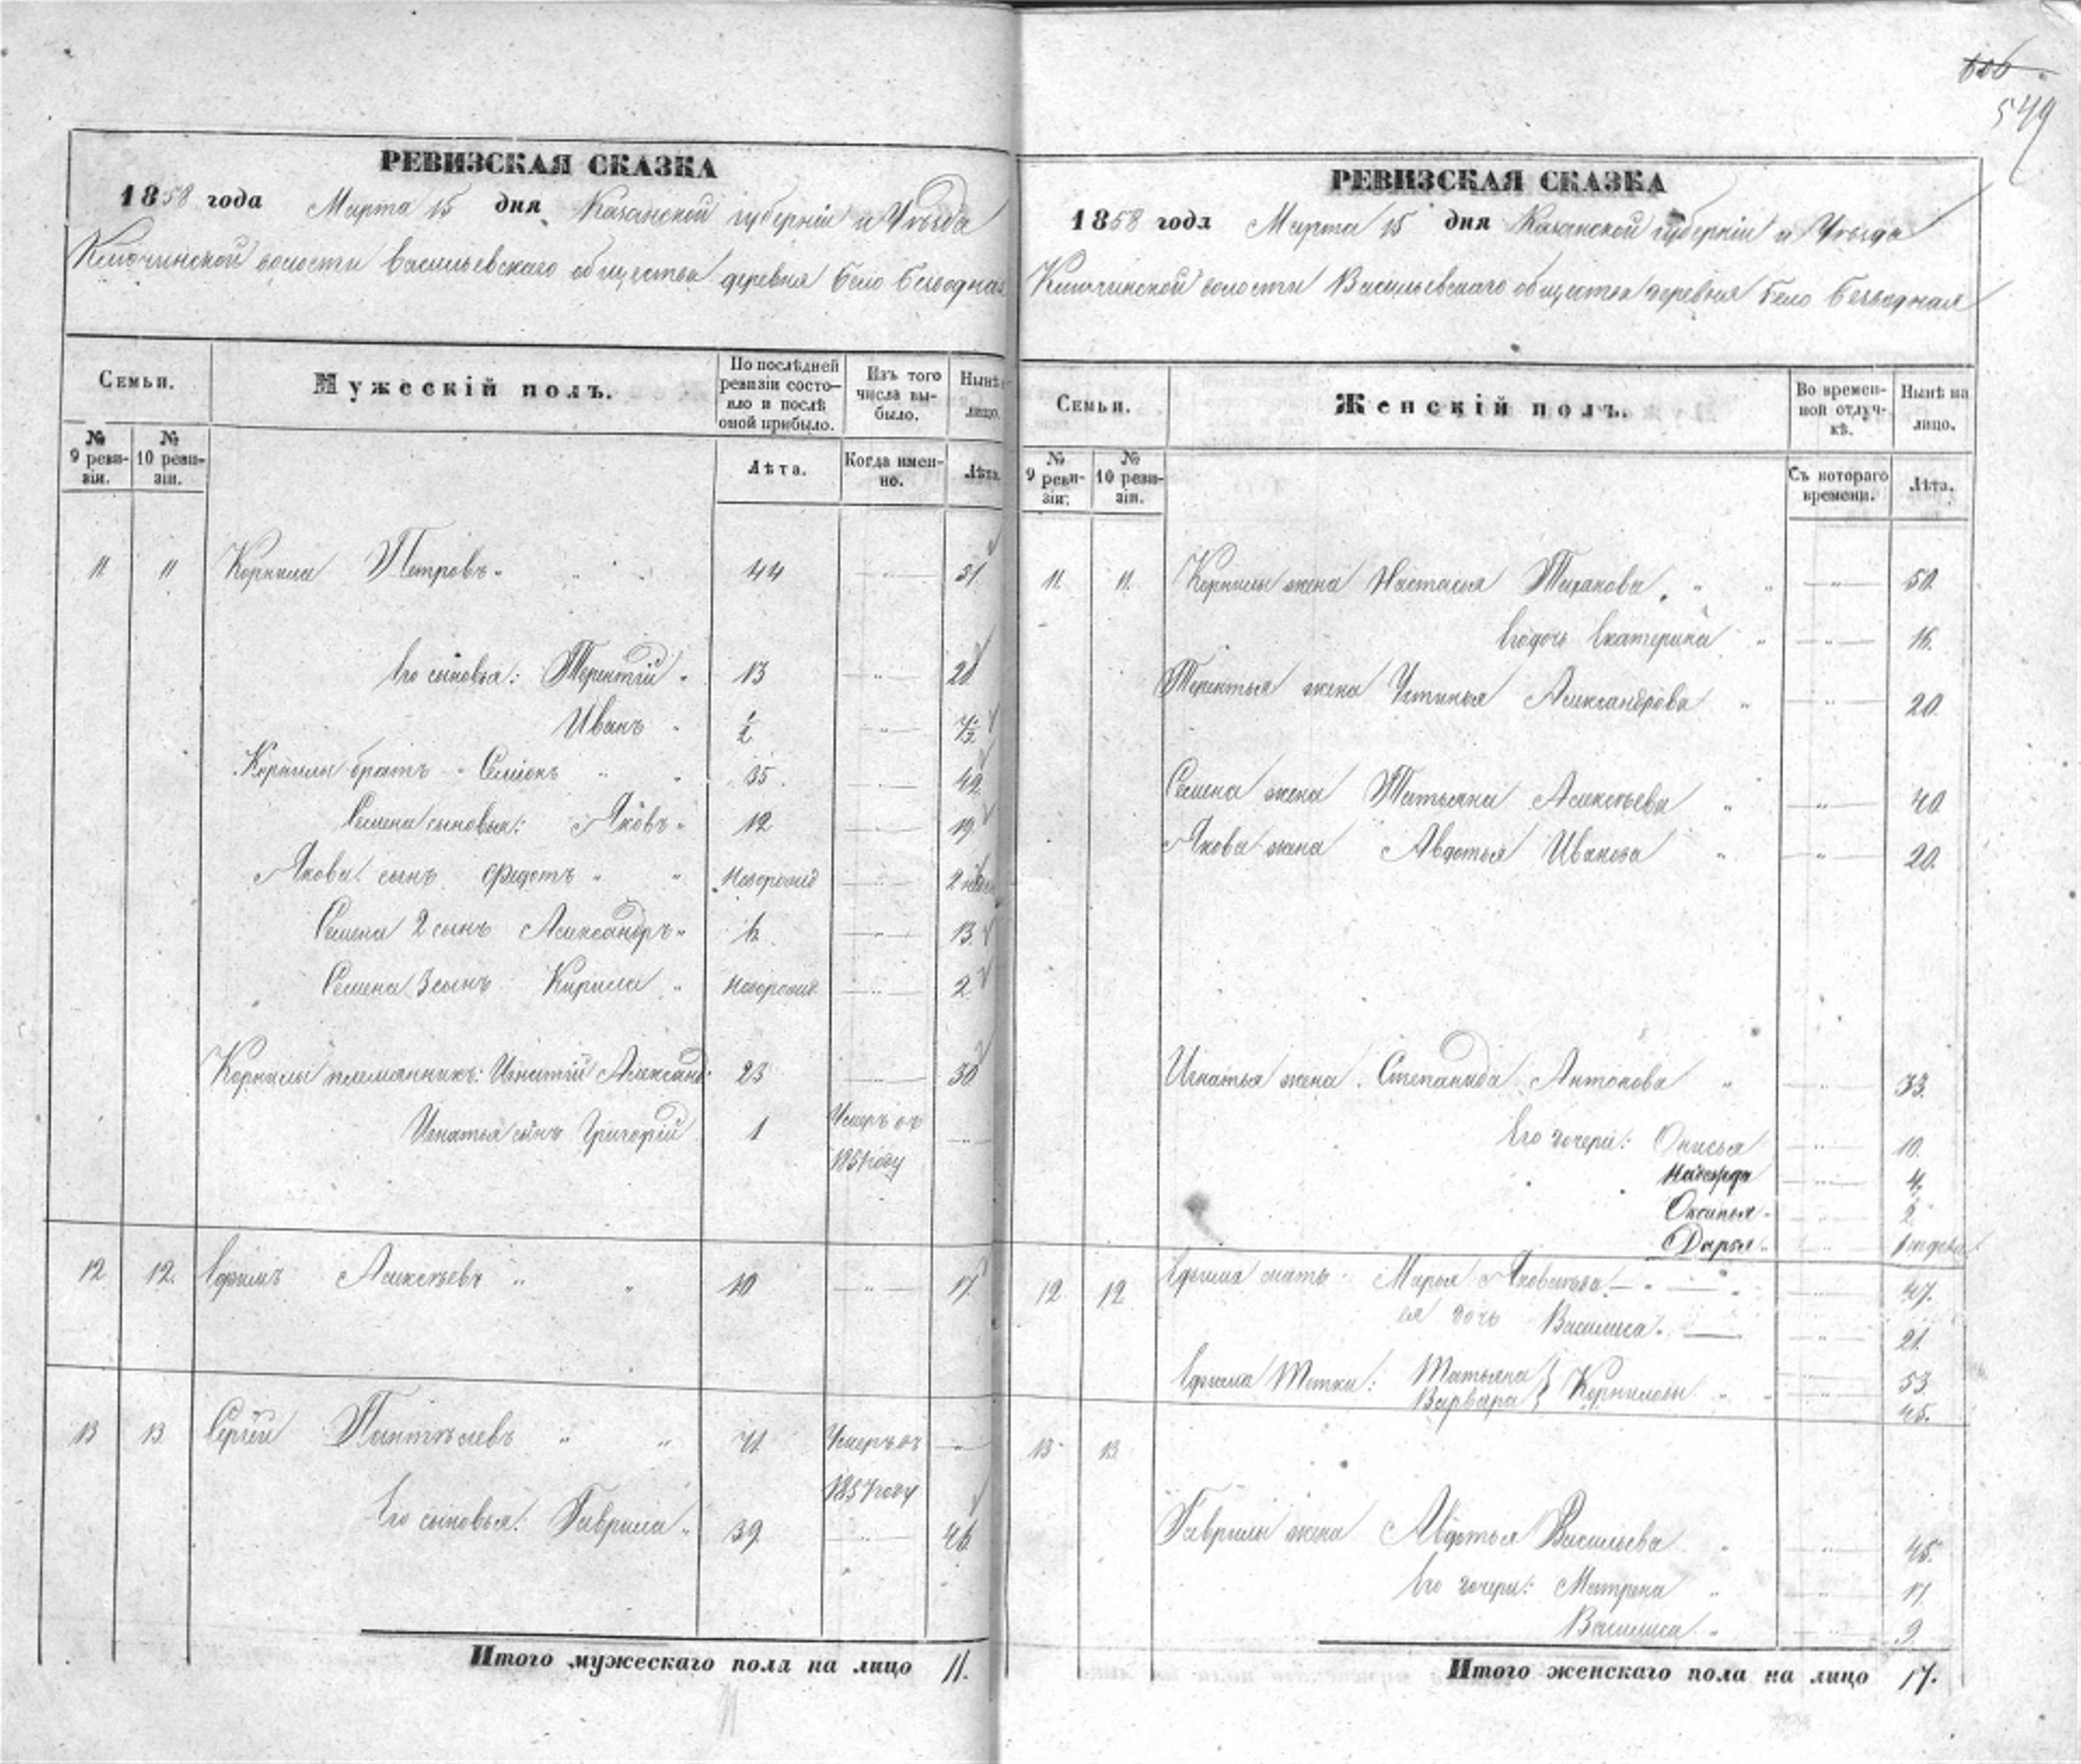 606
549
РЕВИЗСКАЯ СКАЗКА
1858 года Марта 15 дня Казанской губерніи и Уѣзда
Ключинской волости Васильевскаго общества деревня Бело Безводная
Семьи.
Мужескій полъ.
По послѣдней ревизіи состо-
яло и послѣ
оной прибыло.
Изъ того
числа вы-
было.
Нынѣ
лицо.
№
9 реви-
зіи.
№
10 реви-
зіи.
Лѣта.
Когда имен-
но.
Лѣта.
11 11 Корнила Петровъ 44 51
Его сыновья: Терентій 13 20
Иванъ 1/2 7 1/2
Корнилы братъ Семіонъ 35 42
Семена сыновья: Яковъ 12 19
Якова сынъ Федотъ новорожд 2 нед
Семена 2 сынъ Александръ 6 13
Семена 3 сынъ Кирила новорожд 2
Корнилы племянникъ: Игнатій Александ: 23 30
Игнатья сынъ Григорій 1 Умеръ въ
1851 году
12 12. Ефимъ Алексѣевъ 10 17
13 13 Сергій Пантелѣевъ 71 Умеръ въ
1857 году
Его сыновья: Гаврила 39. 46
Итого мужескаго пола на лицо 11.
РЕВИЗСКАЯ СКАЗКА
1858 года Марта 15 дня Казанской губерніи и Уѣзда
Ключинской волости Васильевскаго общества деревня Бело Безводная
Семьи.
Женскій полъ.
Во времен-
ной отлуч-
кѣ.
Нынѣ на
лицо.
№
9 реви-
зіи.
№
10 реви-
зіи.
Съ котораго
времени.
Лѣта.
11. 11. Корнилы жена Настасья Тиханова 50.
Его дочь Екатерина 16.
Терентья жена Устинья Александрова 20.
Семена жена Татьяна Алексѣева 40
Якова жена Авдотья Иванова 20.
Игнатья жена Степанида Антонова 33.
Его дочери: Онисья 10.
Надежда 4
Оксинья 2
Дарья 1 неделя
12 12 Ефима мать Марья Яковлева 47.
ея дочь Василиса 21.
Ефима тетки: Татьяна } Корниловы 53
Варвара 45.
13 13
Гаврилы жена Авдотья Васильева 45.
Его дочери: Матрена 17.
Василиса 9
Итого женскаго пола на лицо 17.